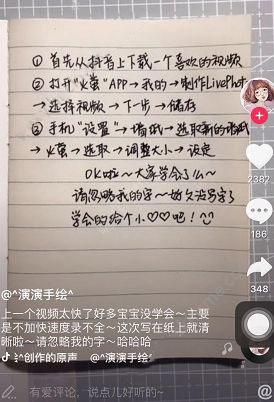 ① 首先从抖音上下载一个喜欢的视频
② 打开"火萤"APP→我的→制作LivePhot
→选择视频→下一步→储存
③ 手机"设置"→墙纸→选取新的墙纸
→火萤→选取→调整大小→设定
OK啦~大家学会了么~
请忽略我的字~好久没写字了
学会的给个小♡♡吧!
2382
186
348
@^演演手绘^
上一个视频太快了好多宝宝没学会~主要
是不加快速度录不全~这次写在纸上就清
晰啦~请忽略我的字~哈哈哈
^创作的原声 @^演演手绘^
有爱评论，说点儿好听的~